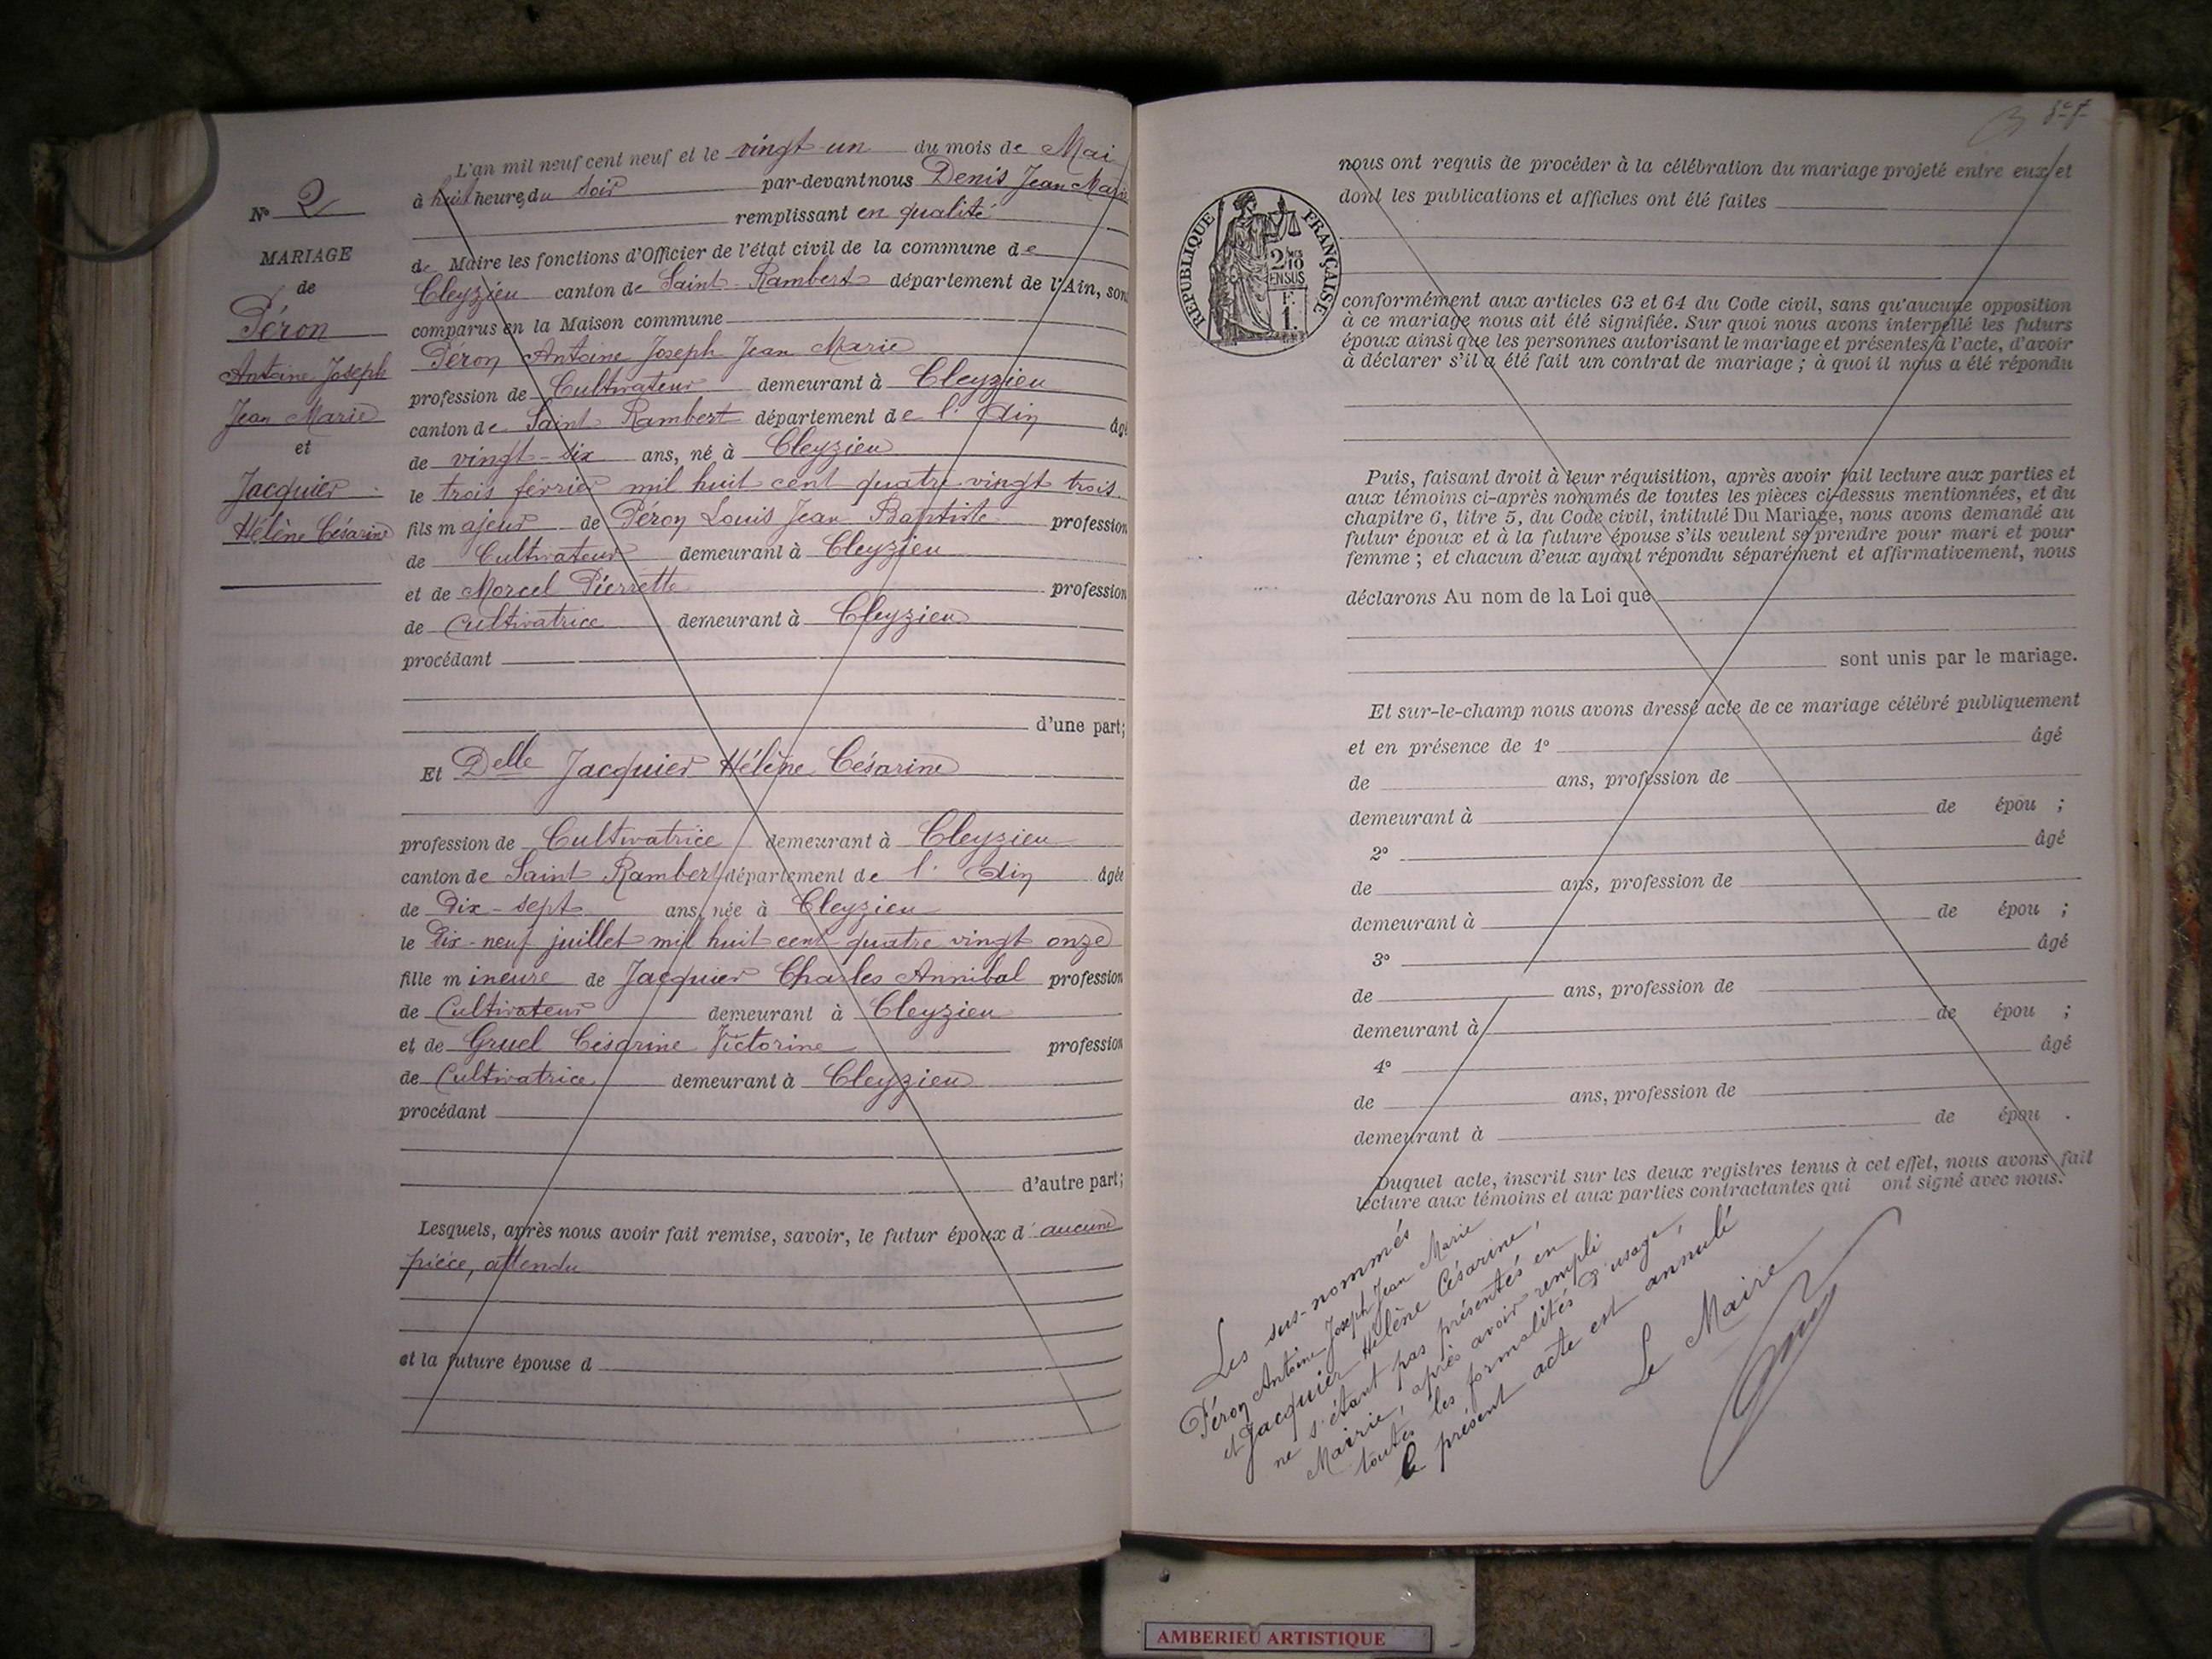 L'an mil neuf cent neuf et le vingt-un du mois de Mai
à huit heures du soir par-devant nous Denis Jean Marie
remplissant en qualité
de Maire les fonctions d'Officier de l'état civil de la commune de
Cleyzieu canton de Saint-Rambert département de l'Ain, son
comparus en la Maison commune
Péron Antoine Joseph Jean Marie
profession de Cultivateur demeurant à Cleyzieu
canton de Saint Rambert département de l'Ain âgé
de vingt-six ans, né à Cleyzieu
le trois février mil huit cent quatre vingt trois
fils majeur de Péron Louis Jean Baptiste profession
de Cultivateur demeurant à Cleyzieu
et de Morcel Pierrette profession
de Cultivatrice demeurant à Cleyzieu
procédant
d'une part;
Et Delle Jacquier Hélène Césarine
profession de Cultivatrice demeurant à Cleyzieu
canton de Saint Rambert département de l'Ain âgée
de Dix-sept ans, née à Cleyzieu
le Dix-neuf juillet mil huit cent quatre vingt onze
fille mineure de Jacquier Charles Annibal profession
de Cultivateur demeurant à Cleyzieu
et de Gruel Césarine Victorine profession
de Cultivatrice demeurant à Cleyzieu
procédant
d'autre part;
Lesquels, après nous avoir fait remise, savoir, le futur époux d'aucune
pièce, attendu
et la future épouse d
N° 2
MARIAGE
de
Péron
Antoine Joseph
Jean Marie
et
Jacquier
Hélène Césarine
nous ont requis de procéder à la célébration du mariage projeté entre eux et
dont les publications et affiches ont été faites
RÉPUBLIQUE FRANÇAISE
2/10 mes
EN SUS
1 F.
conformément aux articles 63 et 64 du Code civil, sans qu'aucune opposition
à ce mariage nous ait été signifiée. Sur quoi nous avons interpellé les futurs
époux ainsi que les personnes autorisant le mariage et présentes à l'acte, d'avoir
à déclarer s'il a été fait un contrat de mariage; à quoi il nous a été répondu
Puis, faisant droit à leur réquisition, après avoir fait lecture aux parties et
aux témoins ci-après nommés de toutes les pièces ci-dessus mentionnées, et du
chapitre 6, titre 5, du Code civil, intitulé Du Mariage, nous avons demandé au
futur époux et à la future épouse s'ils veulent se prendre pour mari et pour
femme; et chacun d'eux ayant répondu séparément et affirmativement, nous
déclarons Au nom de la Loi que
sont unis par le mariage.
Et sur-le-champ nous avons dressé acte de ce mariage célébré publiquement
et en présence de 1° âgé
de ans, profession de
demeurant à de épou ;
2° âgé
de ans, profession de
demeurant à de épou ;
3° âgé
de ans, profession de
demeurant à de épou ;
4° âgé
de ans, profession de
demeurant à de épou .
Duquel acte, inscrit sur les deux registres tenus à cet effet, nous avons fait
lecture aux témoins et aux parties contractantes qui ont signé avec nous.
Les sus-nommés
Péron Antoine Joseph Jean Marie
et Jacquier Hélène Césarine,
ne s'étant pas présentés en
Mairie, après avoir rempli
toutes les formalités d'usage,
le présent acte est annulé
Le Maire
AMBERIEU ARTISTIQUE